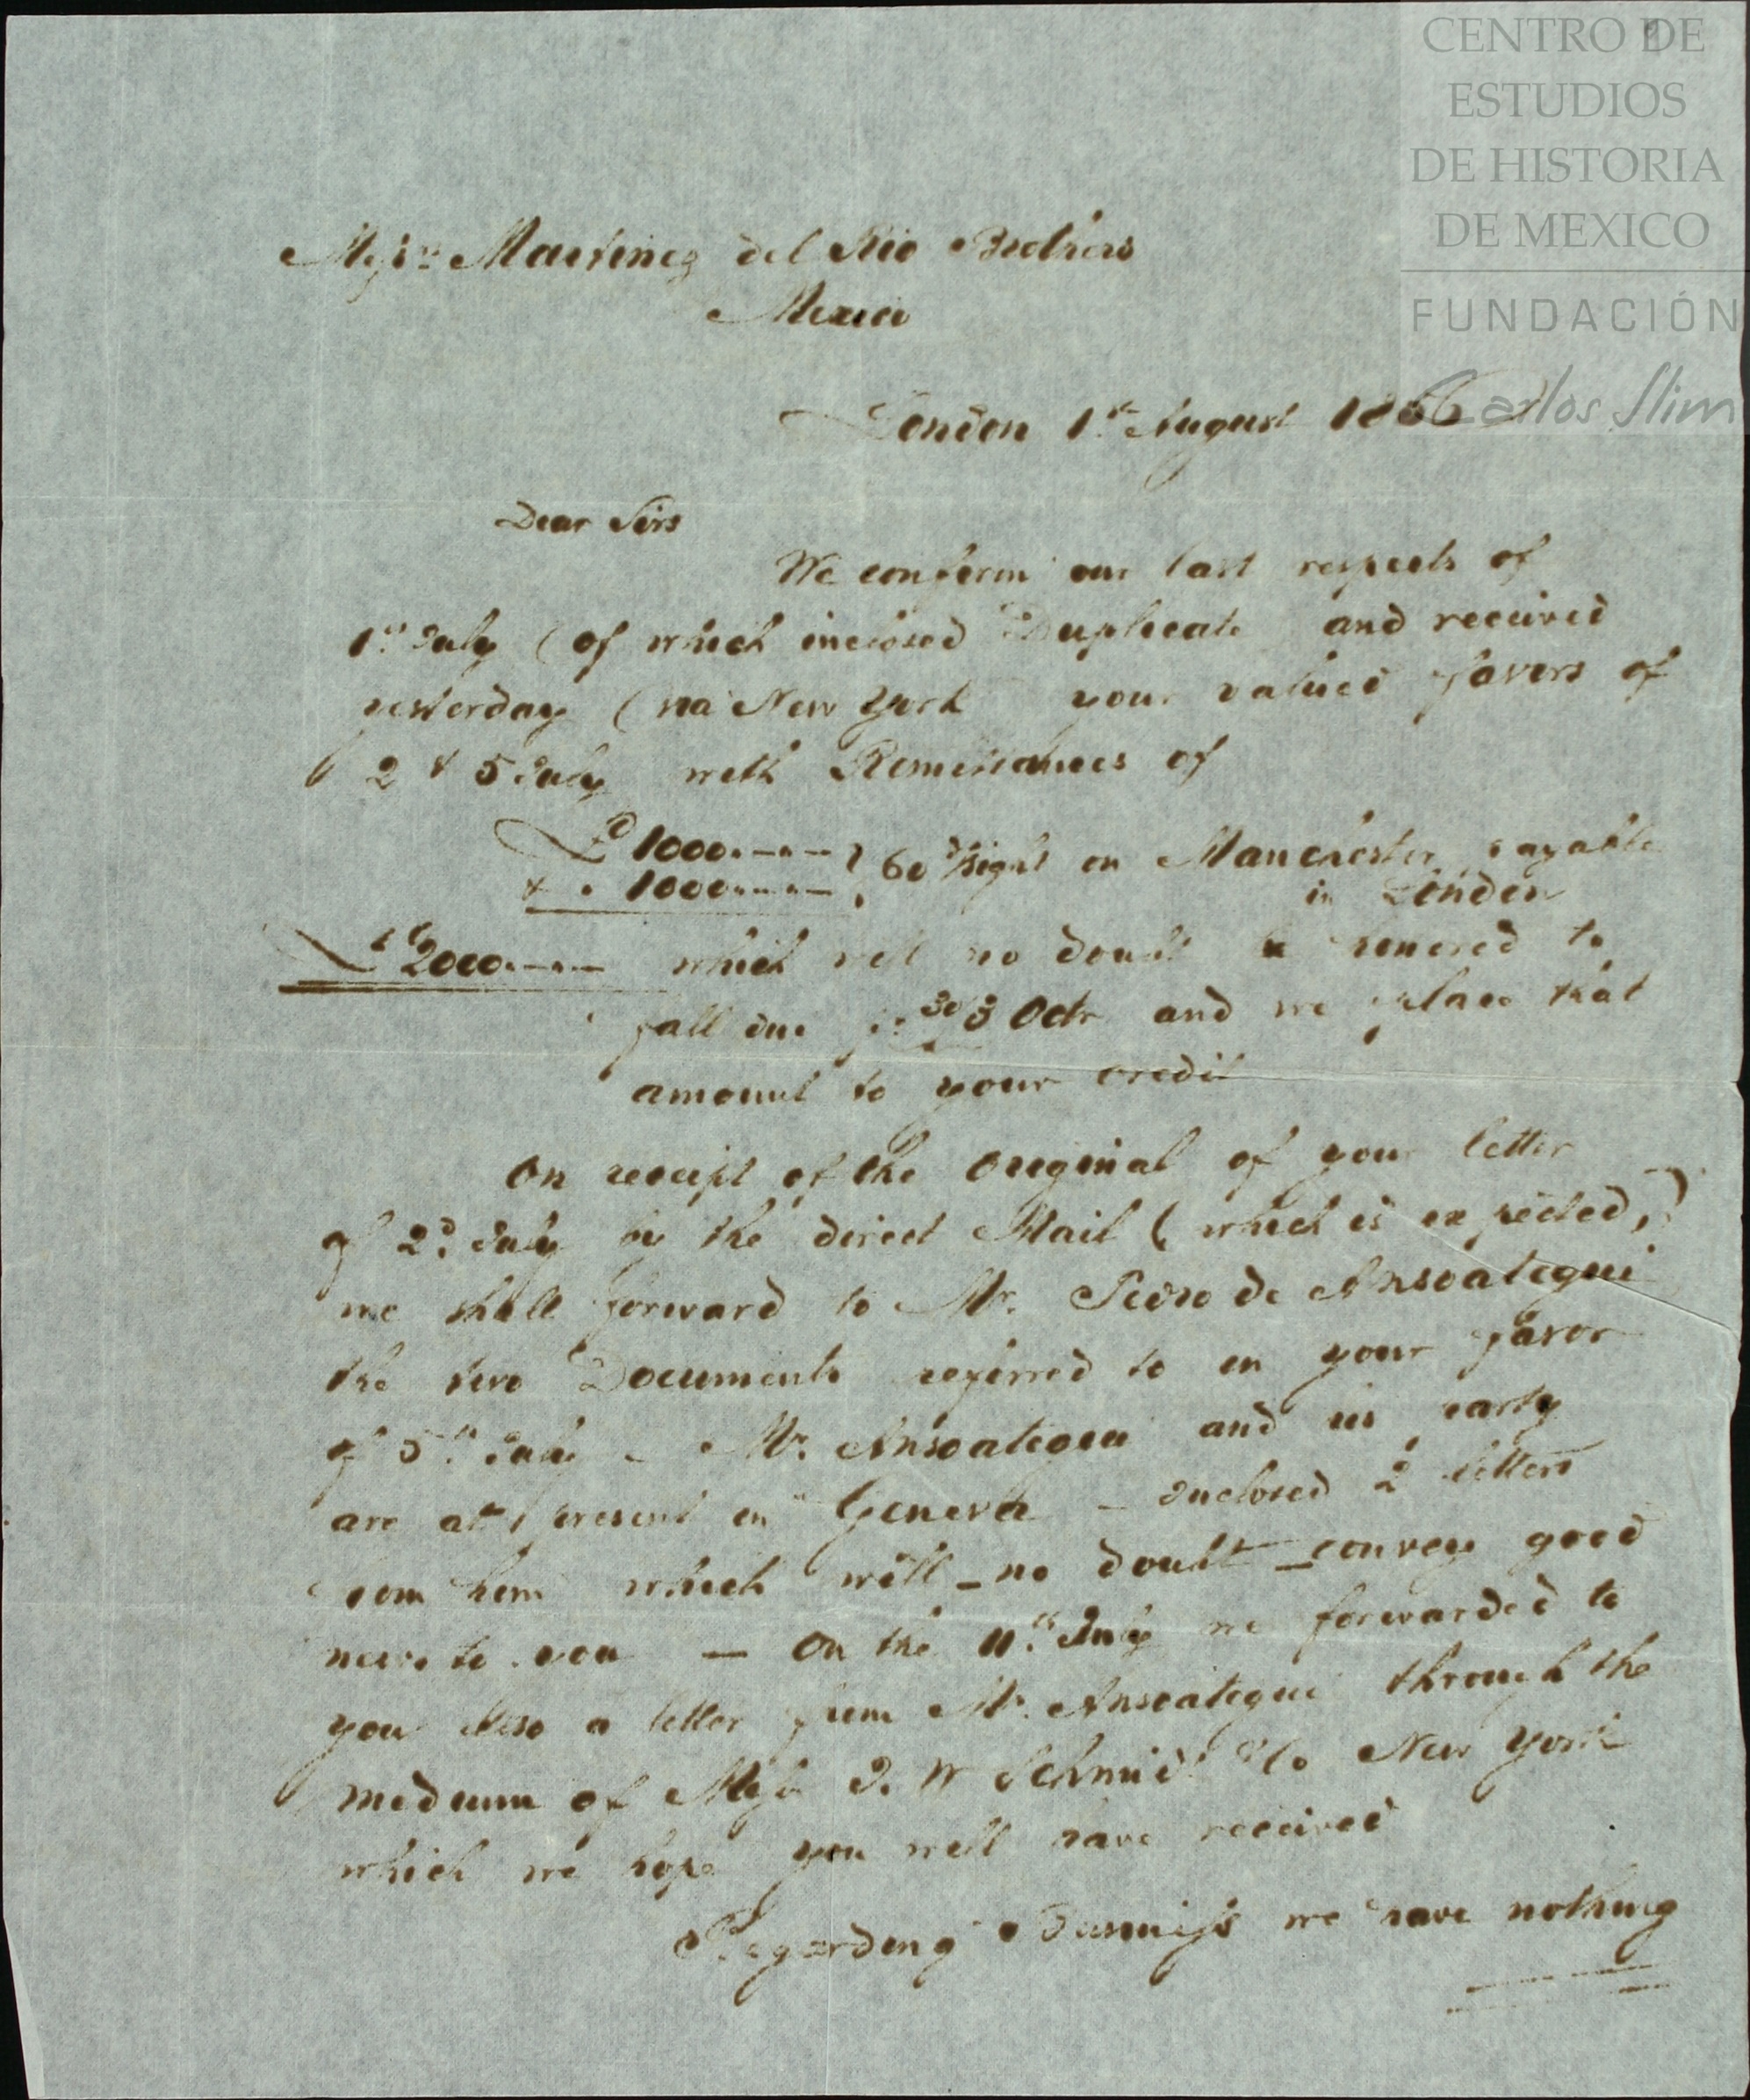 CENTRO DE
ESTUDIOS
DE HISTORIA
DE MEXICO
FUNDACIÓN
Carlos Slim
Messrs Martinez del Rio Brothers
Mexico
London 1st August 1866
Dear Sirs
We confirm our last respects of
1st July (of which inclosed Duplicate and received
yesterday (via New York your valued favors of
2 & 5 July with Remittances of
£ 1000.—.—
& . 1000.—.— 60 d/sight on Manchester payable
in London
£ 2000.—.— which will no doubt be honored to
fall due 30/3 Octr and we place that
amount to your credit
On receipt of the original of your letter
of 2d July by the direct Mail (which is expected,)
we shall forward to Mr. Pedro de Ansoategui
the two Documents referred to in your favor
of 5th July – Mr. Ansoategui and his party
are at present in Geneva – Inclosed 2 letters
from him which will – no doubt – convey good
news to you — On the 11th July we forwarded to
you also a letter from Mr. Ansoategui through the
medium of Messrs J. W Schmidt & Co New York
which we hope you will have received
Regarding Business we have nothing